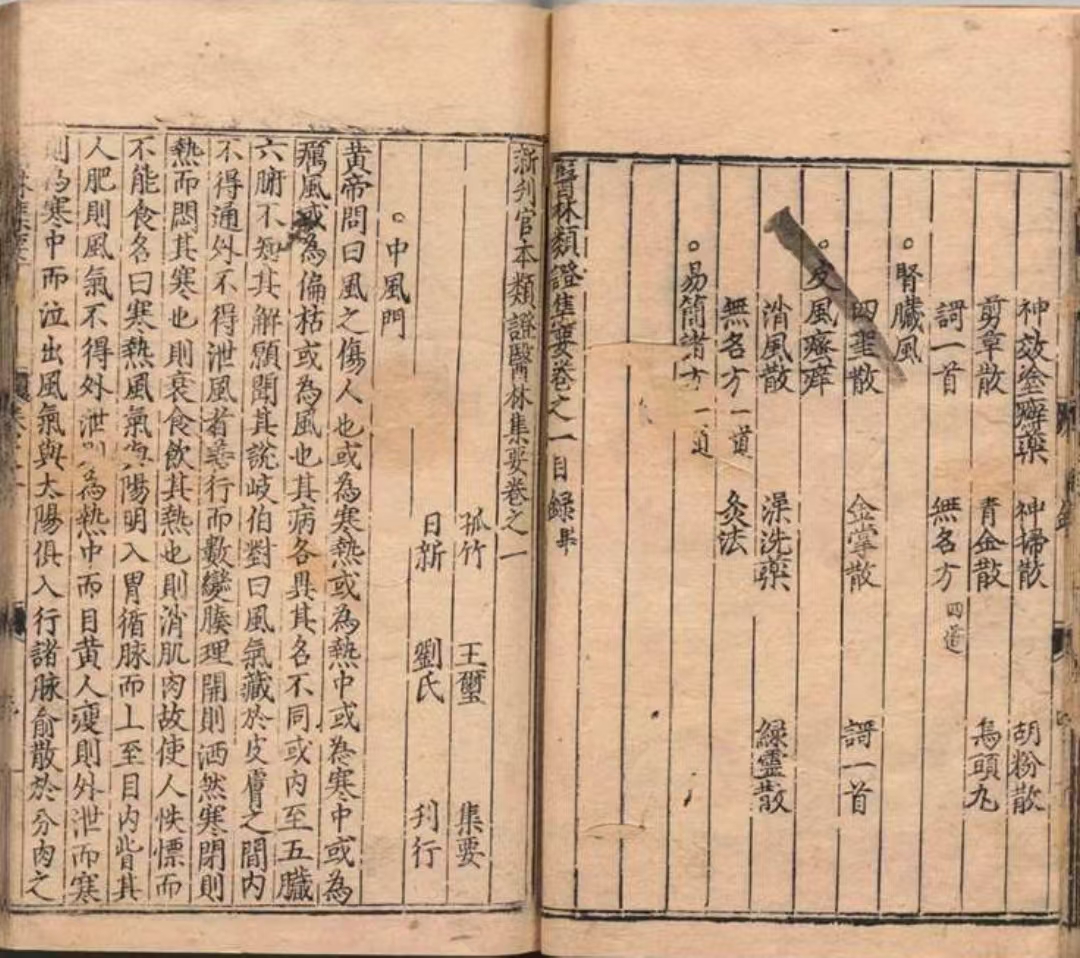 神效塗癬藥 神掃散 胡粉散
剪草散 青金散 烏頭丸
謌一首 無名方四道
。腎臟風
四聖散 金掌散 謌一首
。皮風瘙痒
消風散 澡洗藥 綠雲散
無名方一道 灸法
。易簡諸方一道
醫林類證集要卷之一目錄畢
新刋官本類證醫林集要卷之一
孤竹 王璽 集要
日新 劉氏 刋行
。中風門
黃帝問曰風之傷人也或為寒熱或為熱中或為寒中或為
癘風或為偏枯或為風也其病各異其名不同或內至五臟
六腑不知其解願聞其說岐伯對曰風氣藏於皮膚之間內
不得通外不得泄風者善行而數變腠理開則洒然寒閉則
熱而悶其寒也則衰食飲其熱也則消肌肉故使人怢慄而
不能食名曰寒熱風氣與陽明入胃循脉而上至目內眥其
人肥則風氣不得外泄則為熱中而目黃人瘦則外泄而寒
則為寒中而泣出風氣與太陽俱入行諸脉俞散於分肉之